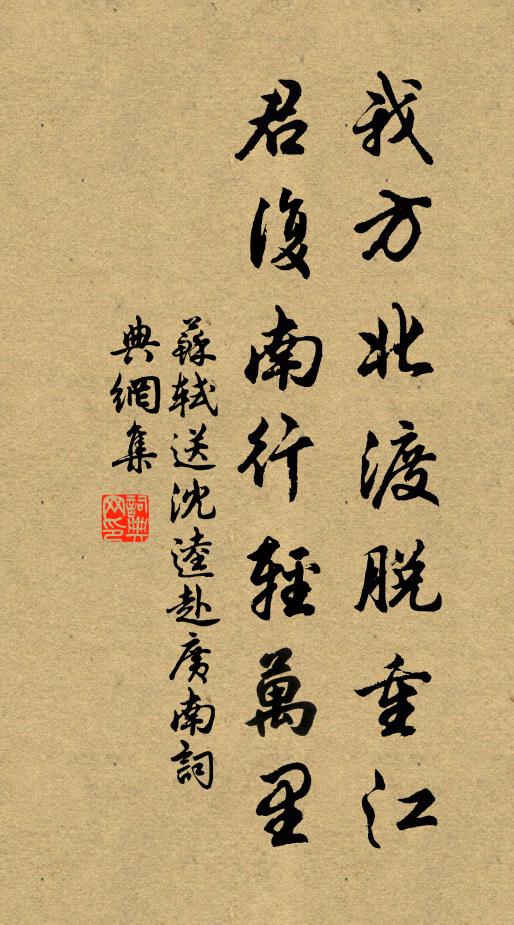 我方北渡脫重江
君復南行輕萬里
蘇軾送沈逵赴廣南詞
典網集
詞典網印